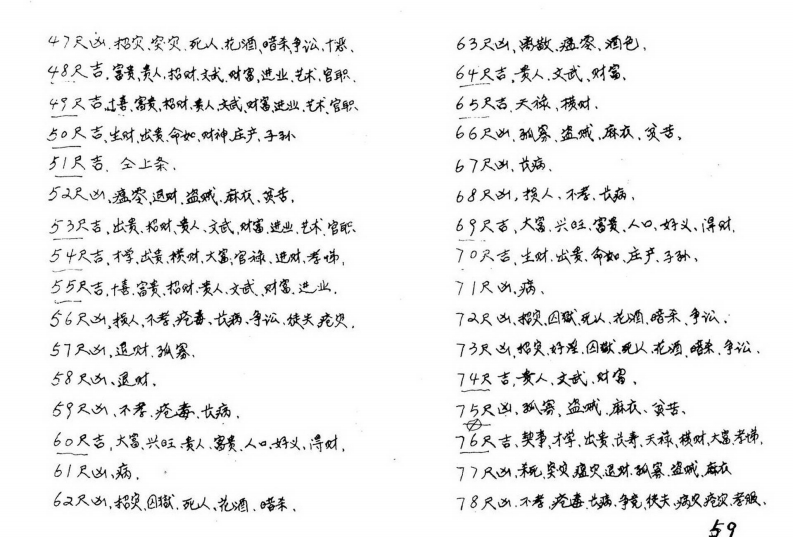 47尺凶.招灾、突灾、死人、花酒、暗杀争讼、十恶、
48尺吉、富贵、贵人、招财、文武、财富、进业、艺术、官职、
49尺吉、十喜、富贵、招财、贵人、文武、财富、进业、艺术、官职、
50尺吉、生财、出贵、命如、财神、庄产、子孙
51尺吉、仝上条、
52尺凶、瘟零、退财、盗贼、麻衣、贫苦、
53尺吉、出贵、招财、贵人、文武、财富、进业、艺术、官职、
54尺吉、才学、出贵、横财、大富、官禄、进财、孝悌、
55尺吉、十喜、富贵、招财、贵人、文武、财富、进业、
56尺凶、损人、不孝、疮毒、长病、争讼、徒夫、疮灾、
57尺凶、退财、孤寡、
58尺凶、退财、
59尺凶、不孝、疮毒、长病、
60尺吉、大富、兴旺、贵人、富贵、人口、好义、得财、
61尺凶、病、
62尺凶、招灾、囚狱、死人、花酒、暗杀、
63尺凶、离散、瘟零、酒色、
64尺吉、贵人、文武、财富、
65尺吉、天禄、横财、
66尺凶、孤寡、盗贼、麻衣、贫苦、
67尺凶、长病、
68尺凶、损人、不孝、长病、
69尺吉、大富、兴旺、富贵、人口、好义、得财、
70尺吉、生财、出贵、命如、庄产、子孙、
71尺凶、病、
72尺凶、招灾、囚狱、死人、花酒、暗杀、争讼、
73尺凶、招灾、奸淫、囚狱、死人、花酒、暗杀、争讼、
74尺吉、贵人、文武、财富、
75尺凶、孤寡、盗贼、麻衣、贫苦、
76尺吉、契事、才学、出贵、长寿、天禄、横财、大富、孝悌、
77尺凶、杀死、突灾、瘟灾、退财、孤寡、盗贼、麻衣
78尺凶、不孝、疮毒、长病、争竞、徒夫、病灾、疮灾、孝服、
59